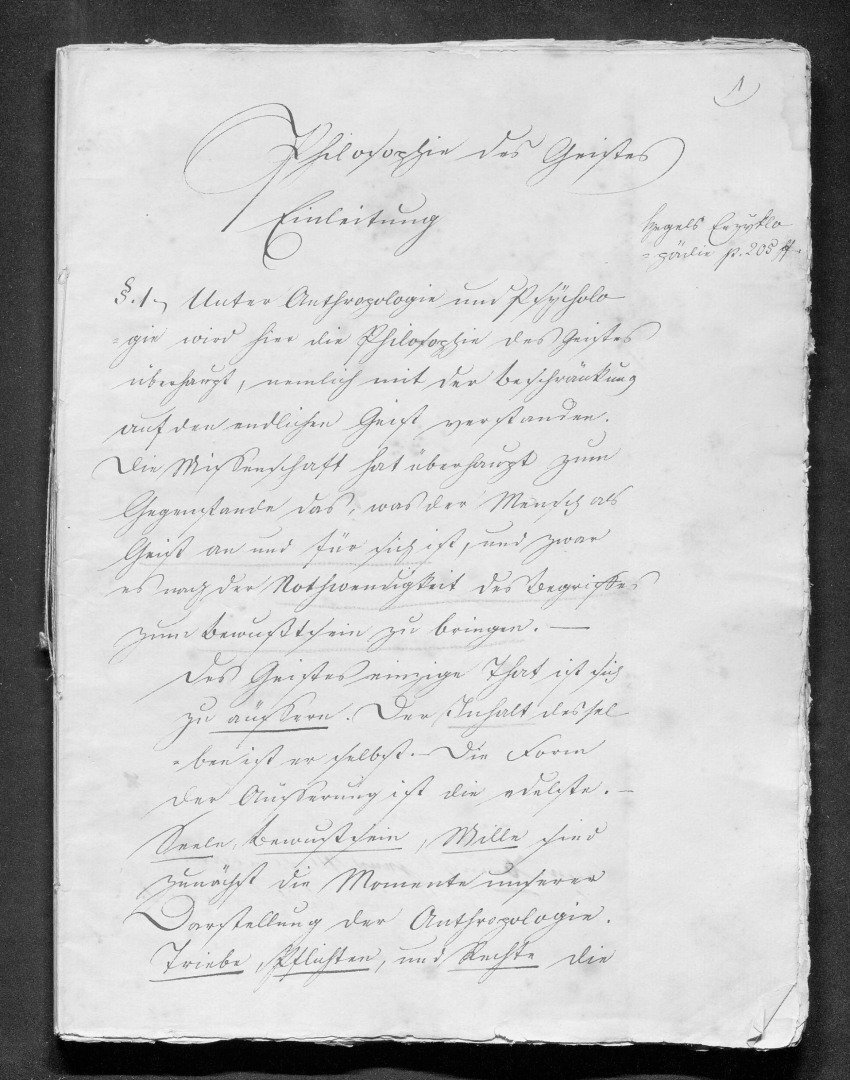 1
Philosophie des Geistes
Einleitung
Hegels Enzyklo
=pädie p. 205 ff.
§. 1. Unter Anthropologie und Psÿcholo
=gie wird hier die Philosophie des Geistes
überhaupt, nemlich mit der Beschränkung
auf den endlichen Geist verstanden.
Die Wissenschaft hat überhaupt zum
Gegenstande das, was der Mensch als
Geist an und für sich ist, und zwar
es nach der Nothwendigkeit des Begriffes
zum Bewußtsein zu bringen. —
Des Geistes einzige That ist sich
zu äußern. Der Inhalt dessel
=ben ist er selbst. Die Form
der Äusserung ist die edelste. –
Seele, Bewustsein, Wille sind
zunächst die Momente unserer
Darstellung der Anthropologie.
Triebe, Pflichten, und Rechte die